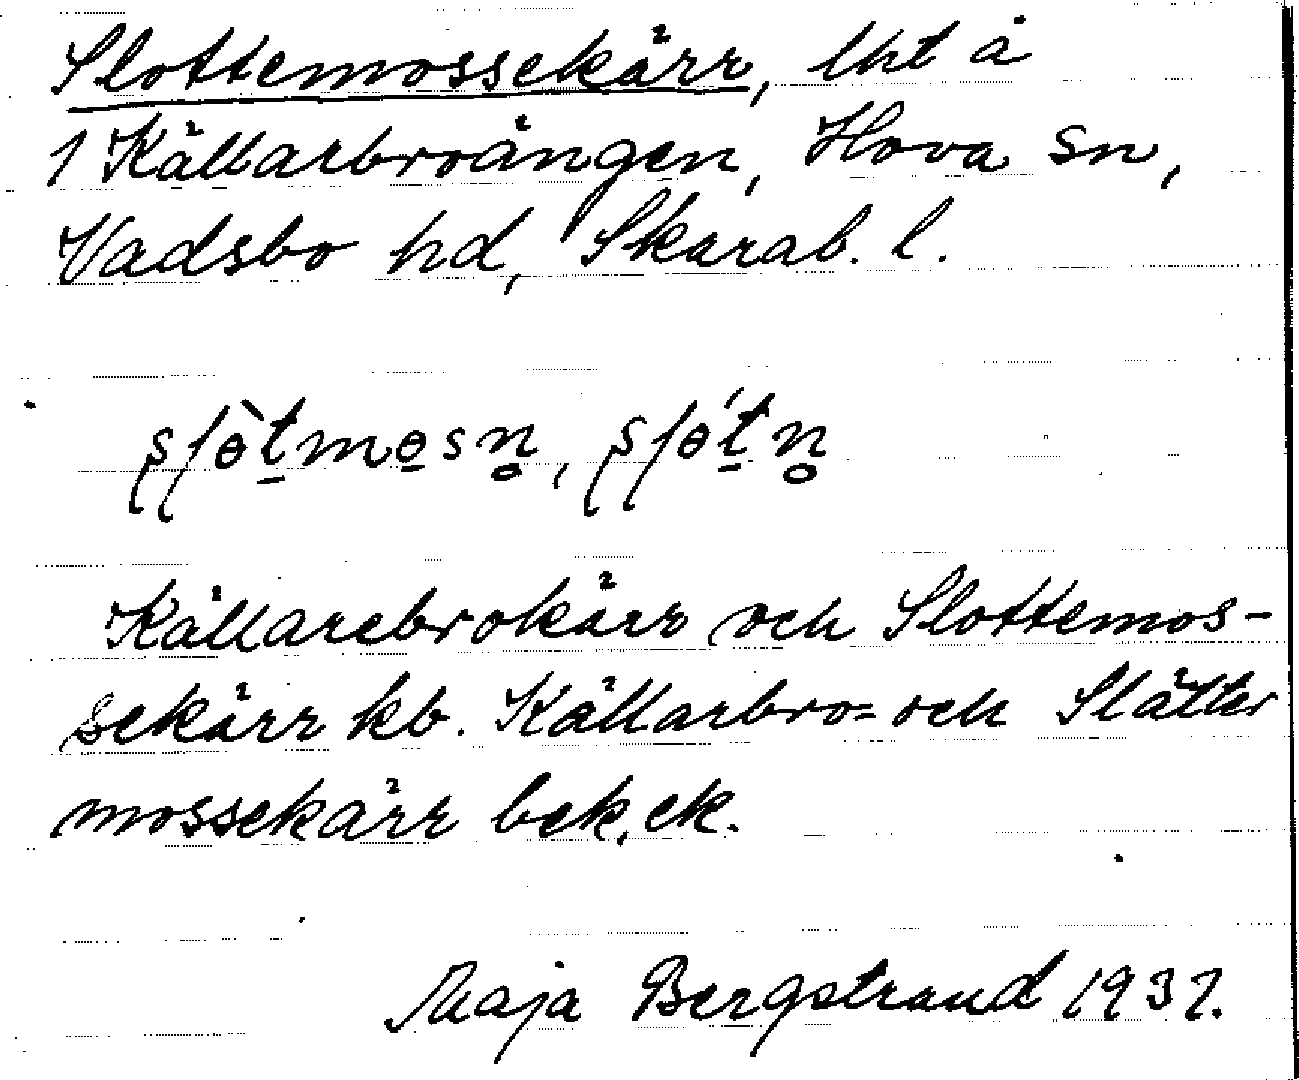 Slottemossekärr, lht å
1 Källarbroängen, Hova sn,
Vadsbo hd, Skarab. l.
Källarebrokärr och Slottemos-
sekärr kb. Källarbro- och Slätter
mossekärr bek. ek.
Maja Bergstrand 1937.